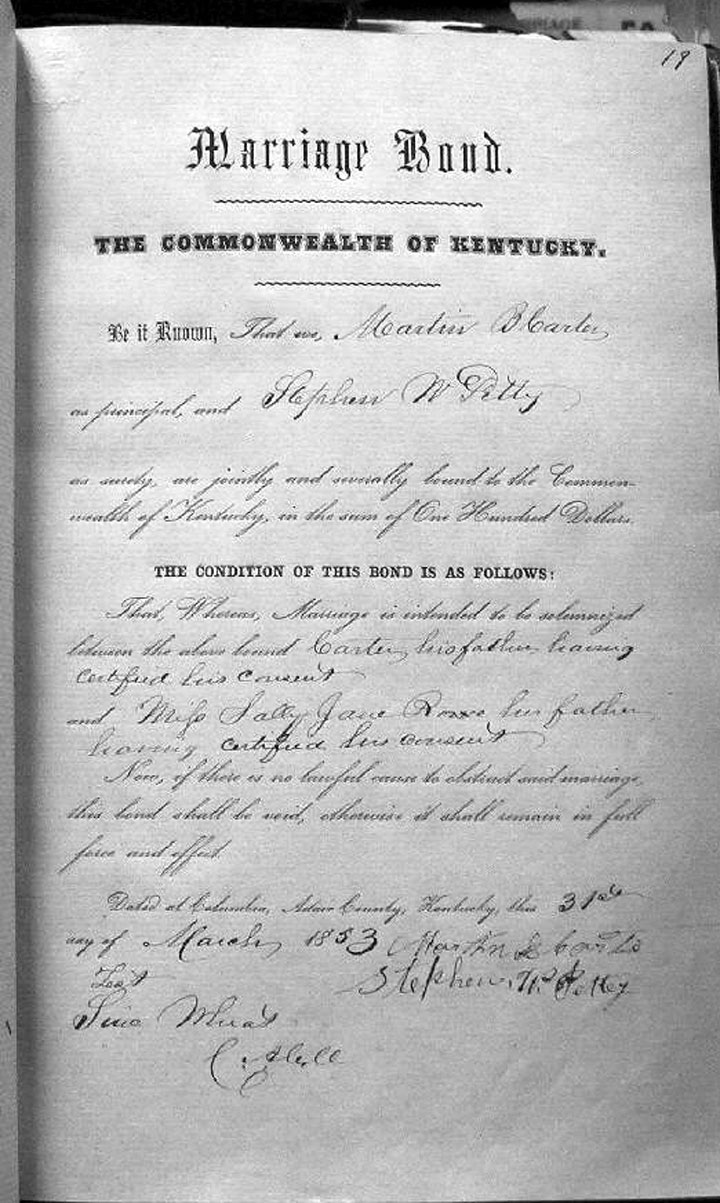 RIAGE
19
Marriage Bond.
THE COMMONWEALTH OF KENTUCKY.
Be it Known, That we, Martin B Carter
as principal, and Stephen W Petty
as surety, are jointly and severally bound to the Common-
wealth of Kentucky, in the sum of One Hundred Dollars.
THE CONDITION OF THIS BOND IS AS FOLLOWS:
That, Whereas, Marriage is intended to be solemnized
between the above bound Carter, his father having
certified his consent
and Miss Sally Jane her father
having certified his consent
Now, if there is no lawful cause to obstruct said marriage,
this bond shall be void, otherwise it shall remain in full
force and effect.
Dated at Columbia, Adair County, Kentucky, this 31st
day of March 1853 Martin B Carter
Test Stephen W. Petty
Wheat